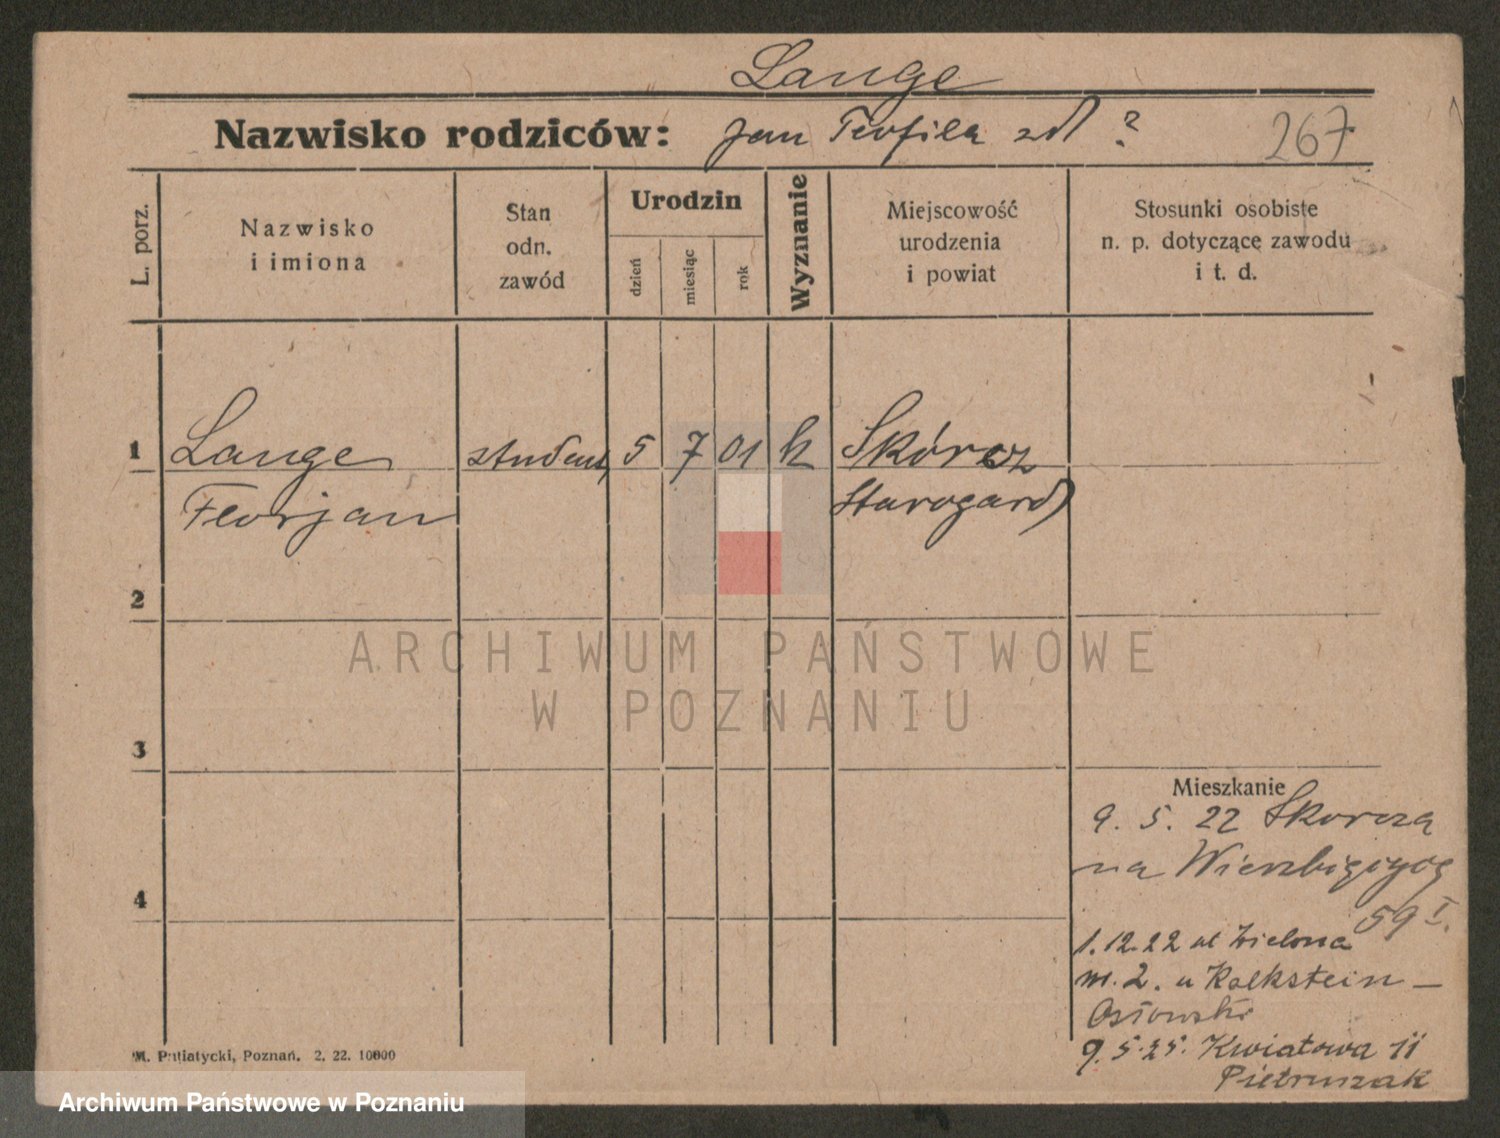 Lange
Nazwisko rodziców: Jan Teofila zd ?
267
L. porz.
Nazwisko
i imiona
Stan
odn.
zawód
Urodzin
dzień
miesiąc
rok
Wyznanie
Miejscowość
urodzenia
i powiat
Stosunki osobiste
n. p. dotyczące zawodu
i t. d.
1
Lange student 5 7 01 k Skórcz
Florjan Starogard
2
ARCHIWUM PAŃSTWOWE
W POZNANIU
3
Mieszkanie
9. 5. 22 Skorcza
na
59 I.
4
1.12.22 ul Zielona
m. 2. u Kalkstein –
Osłowski
9. 5. 25. Kwiatowa 11
Pietruszak
M. Putiatycki, Poznań. 2. 22. 10000
Archiwum Państwowe w Poznaniu